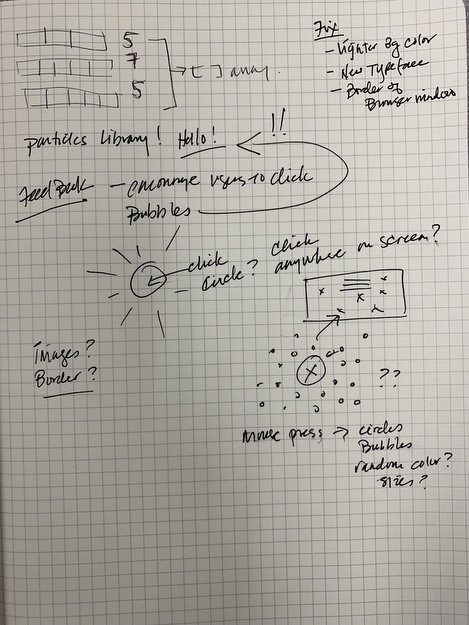 5
7
5
→ [ ] array.
Fix
- Lighter bg color
- New Typeface
- Border of
Browser window
particles Library! Hello! !!
Feedback - encourage users to click
Bubbles
click
circle?
click
anywhere on screen?
Images?
Border?
x
??
mouse press → circles
Bubbles
random color?
sizes?